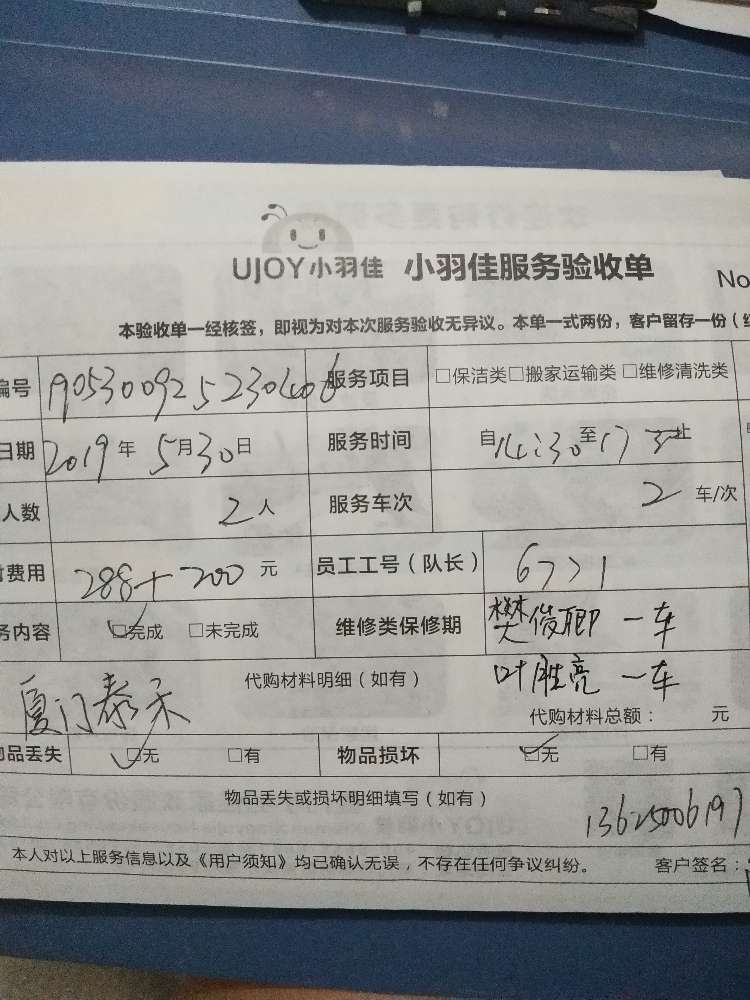 UJOY小羽佳 小羽佳服务验收单 No
本验收单一经核签，即视为对本次服务验收无异议。本单一式两份，客户留存一份（红
编号 服务项目 □保洁类□搬家运输类 □维修清洗类
日期 2019年 5月30日 服务时间 自14:30至17
人数 2人 服务车次 2 车/次
费用 288+200元 员工工号（队长） 6771
务内容 □完成 □未完成 维修类保修期 樊俊卿 一车
代购材料明细（如有） 叶胜亮 一车
厦门泰禾 代购材料总额： 元
物品丢失 □无 □有 物品损坏 □无 □有
物品丢失或损坏明细填写（如有）
13625006197
本人对以上服务信息以及《用户须知》均已确认无误，不存在任何争议纠纷。 客户签名：